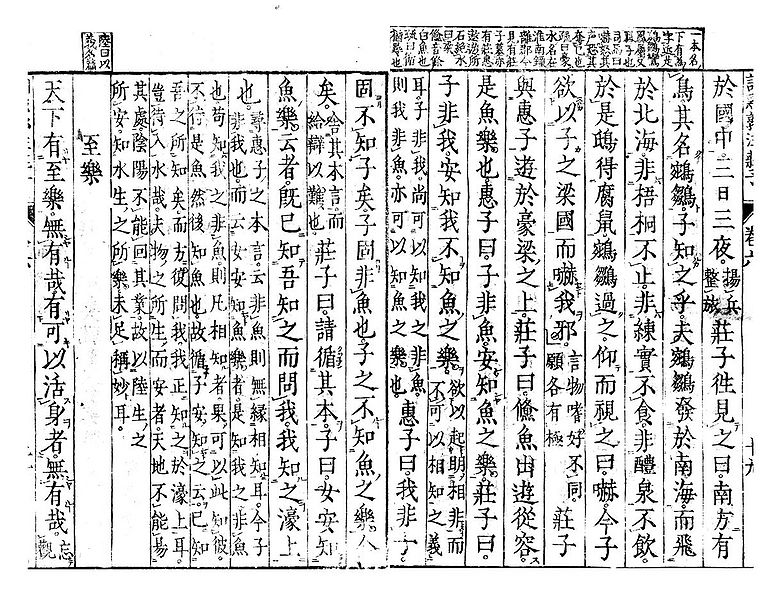 於國中三日三夜。揚兵整旅莊子往見之曰南方有
鳥其名鵷鶵。子知之乎夫鵷鶵發於南海而飛
於北海非梧桐不止。非練實不食。非醴泉不飲。
於是鴟得腐鼠。鵷鶵過之。仰而視之曰。嚇。今子
欲以子之梁國而嚇我邪。言物嗜好不同願各有極莊子
與惠子遊於豪梁之上。莊子曰儵魚出遊從容。
是魚樂也。惠子曰。子非魚。安知魚之樂。莊子曰。
子非我。安知我不知魚之樂。欲以起明相非而不可以相知之義
耳子非我尚可以知我之非魚。則我非魚。亦可以知魚之樂也惠子曰。我非子
固不知子矣子固非魚也。子之不知魚之樂全
矣。舍其本言而給辯以難也莊子曰。請循其本。子曰。女安知
魚樂云者。既已知吾知之而問我。我知之濠上
也。尋惠子之本言。云非魚則無緣相知耳。今子非我也。而云女安知魚樂者。是知我之非魚
也苟知我之非魚則凡相知者果可以此知彼。不待是魚然後知魚也故循子安知之云。已知
吾之所知矣而方復問我我正知之於濠上耳。豈待入水哉夫物之所生而安者天地不能易
其處陰陽不能回其業故以陸生之所安知水生之所樂未足稱妙耳。
至樂
天下有至樂。無有哉有可以活身者。無有哉。忘歡